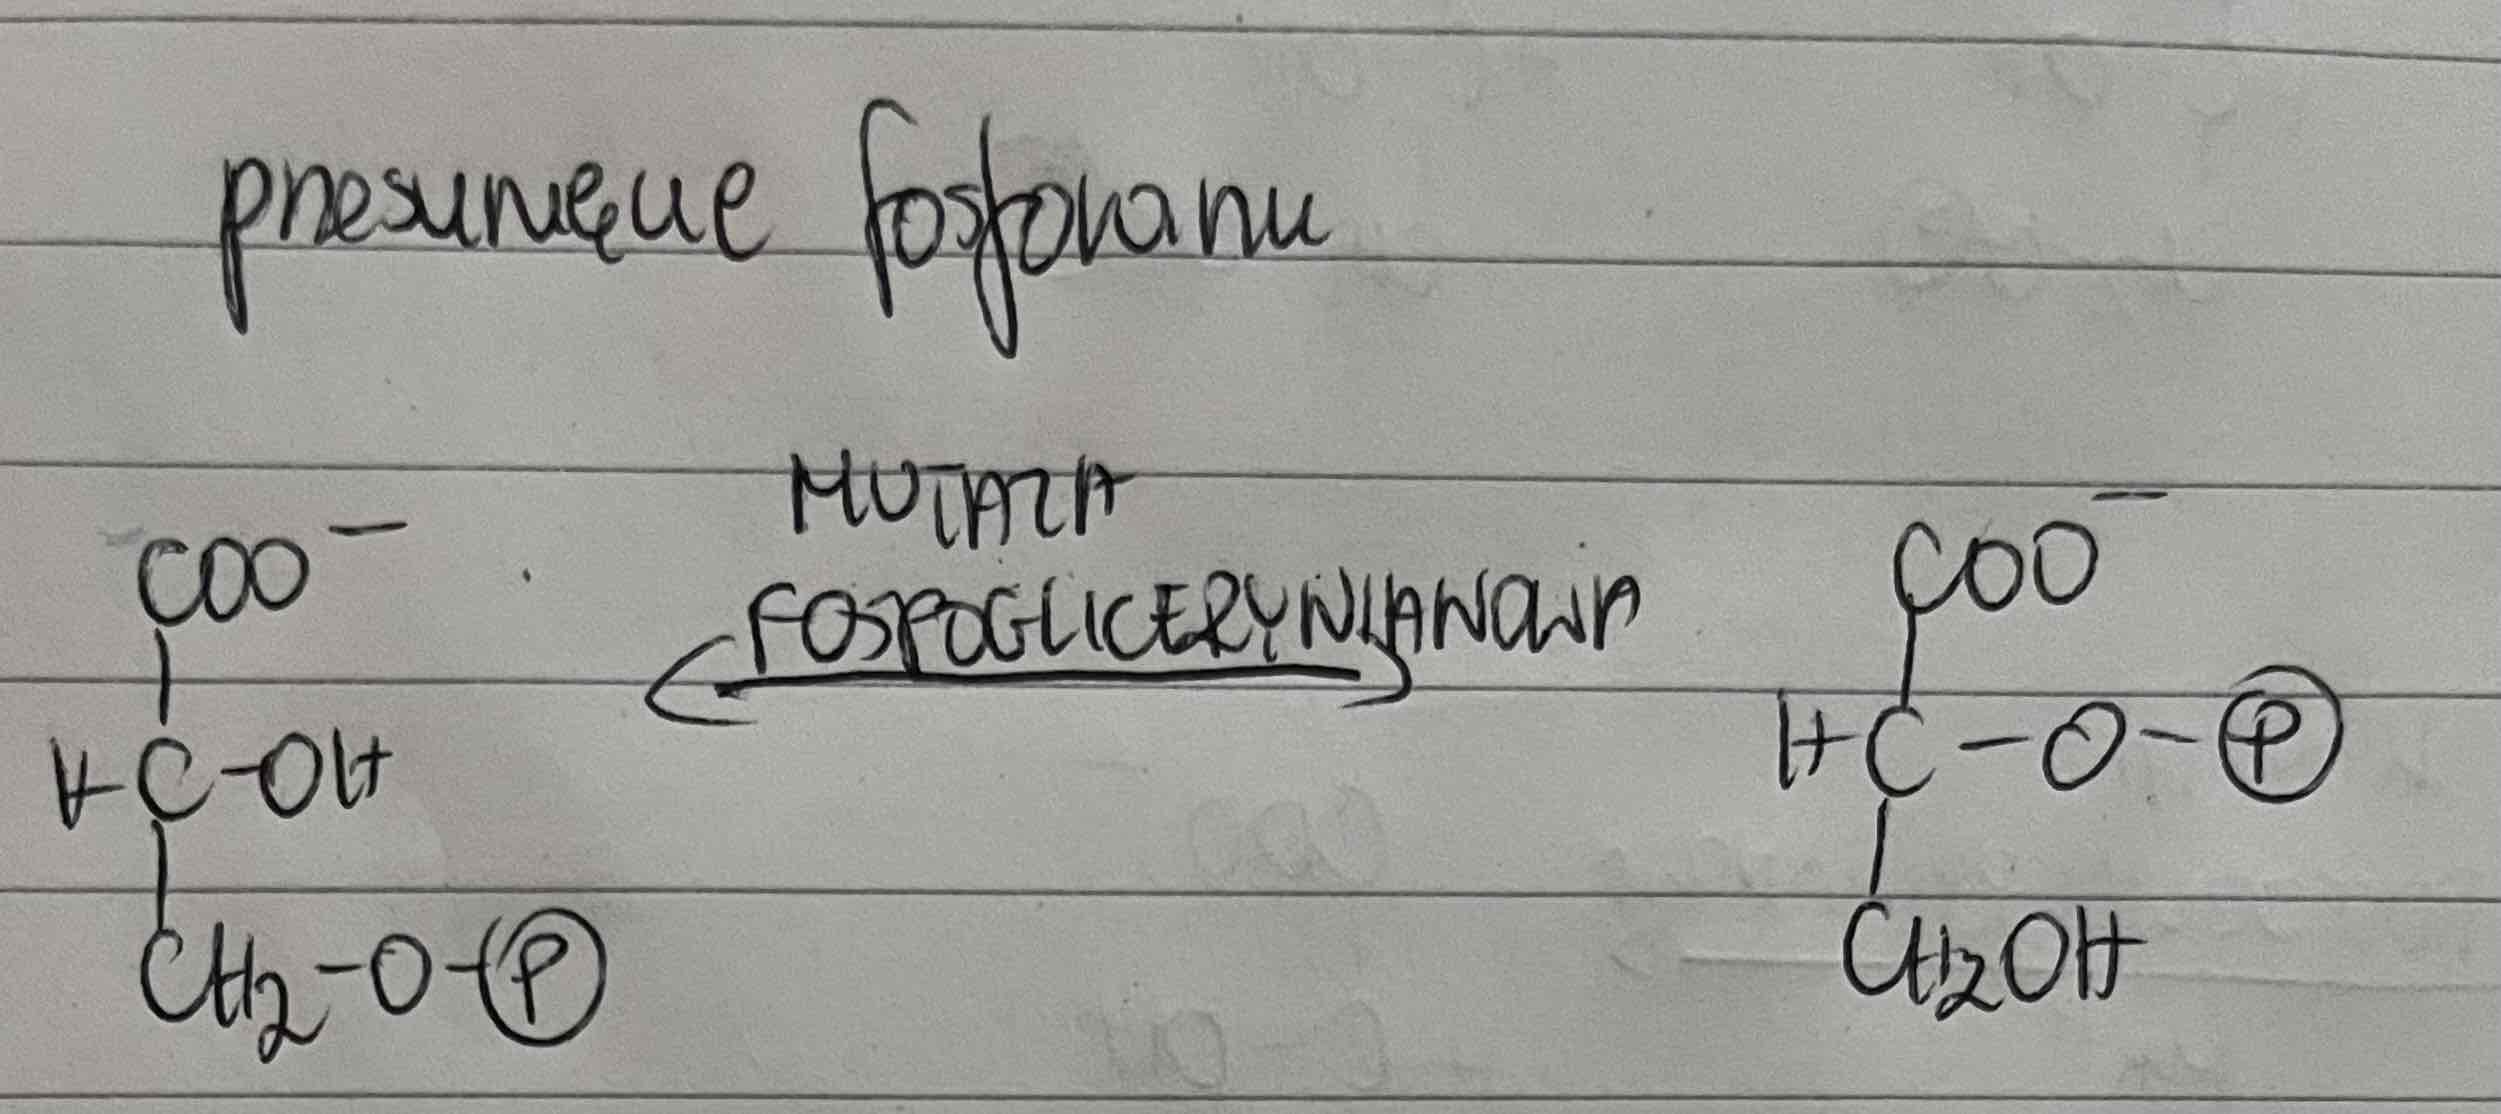 przesunięcie fosforanu
MUTAZA
COO⁻ FOSFOGLICERYNIANOWA COO⁻
H-C-OH H-C-O-P
CH₂-O-P CH₂OH